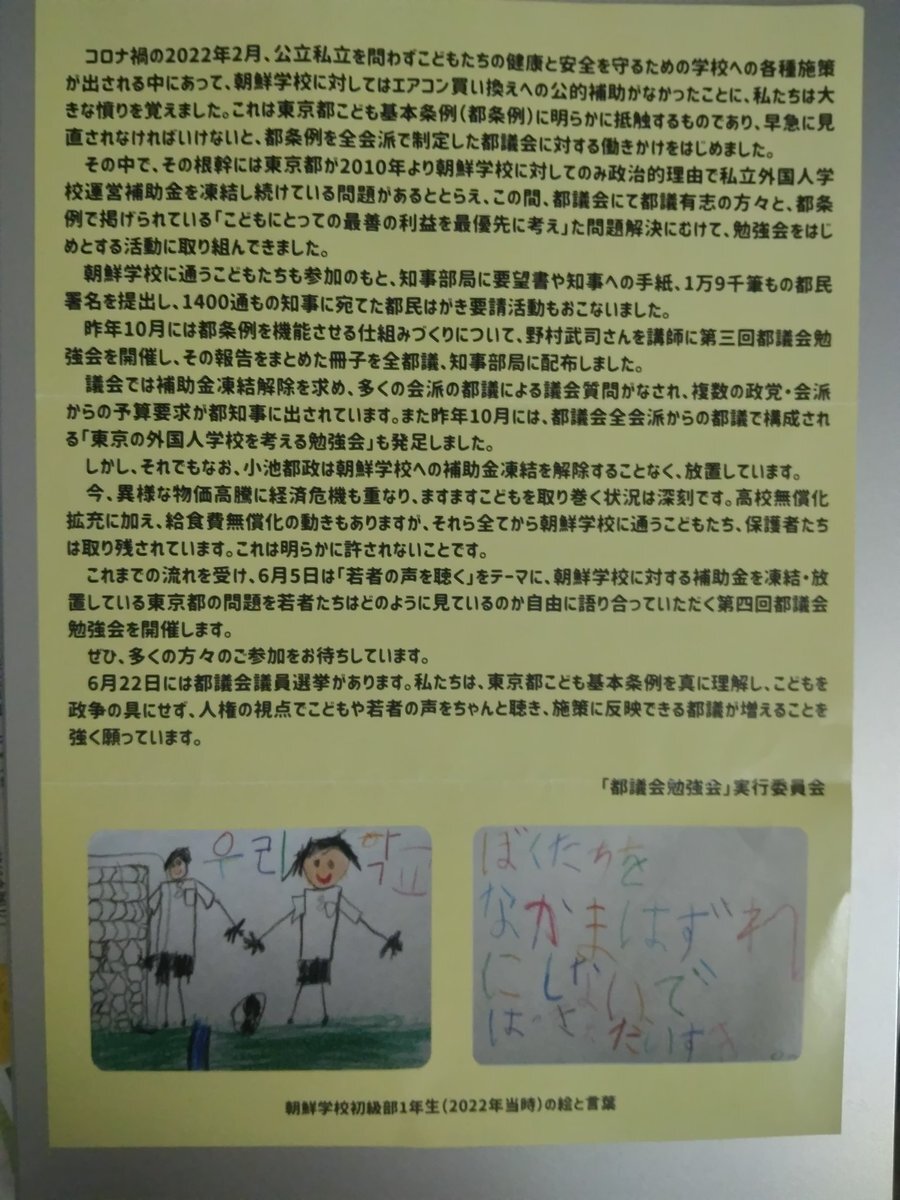 コロナ禍の2022年2月、公立私立を問わずこどもたちの健康と安全を守るための学校への各種施策
が出される中にあって、朝鮮学校に対してはエアコン買い換えへの公的補助がなかったことに、私たちは大
きな憤りを覚えました。これは東京都こども基本条例(都条例)に明らかに抵触するものであり、早急に見
直されなければいけないと、都条例を全会派で制定した都議会に対する働きかけをはじめました。
その中で、その根幹には東京都が2010年より朝鮮学校に対してのみ政治的理由で私立外国人学
校運営補助金を凍結し続けている問題があるととらえ、この間、都議会にて都議有志の方々と、都条
例で掲げられている「こどもにとっての最善の利益を最優先に考え」た問題解決にむけて、勉強会をはじ
めとする活動に取り組んできました。
朝鮮学校に通うこどもたちも参加のもと、知事部局に要望書や知事への手紙、1万9千筆もの都民
署名を提出し、1400通もの知事に宛てた都民はがき要請活動もおこないました。
昨年10月には都条例を機能させる仕組みづくりについて、野村武司さんを講師に第三回都議会勉
強会を開催し、その報告をまとめた冊子を全都議、知事部局に配布しました。
議会では補助金凍結解除を求め、多くの会派の都議による議会質問がなされ、複数の政党・会派
からの予算要求が都知事に出されています。また昨年10月には、都議会全会派からの都議で構成され
る「東京の外国人学校を考える勉強会」も発足しました。
しかし、それでもなお、小池都政は朝鮮学校への補助金凍結を解除することなく、放置しています。
今、異様な物価高騰に経済危機も重なり、ますますこどもを取り巻く状況は深刻です。高校無償化
拡充に加え、給食費無償化の動きもありますが、それら全てから朝鮮学校に通うこどもたち、保護者たち
は取り残されています。これは明らかに許されないことです。
これまでの流れを受け、6月5日は「若者の声を聴く」をテーマに、朝鮮学校に対する補助金を凍結・放
置している東京都の問題を若者たちはどのように見ているのか自由に語り合っていただく第四回都議会
勉強会を開催します。
ぜひ、多くの方々のご参加をお待ちしています。
6月22日には都議会議員選挙があります。私たちは、東京都こども基本条例を真に理解し、こどもを
政争の具にせず、人権の視点でこどもや若者の声をちゃんと聴き、施策に反映できる都議が増えることを
強く願っています。
「都議会勉強会」実行委員会
우리 학교
ぼくたちを
なかまはずれ
にしないで
朝鮮学校初級部1年生(2022年当時)の絵と言葉